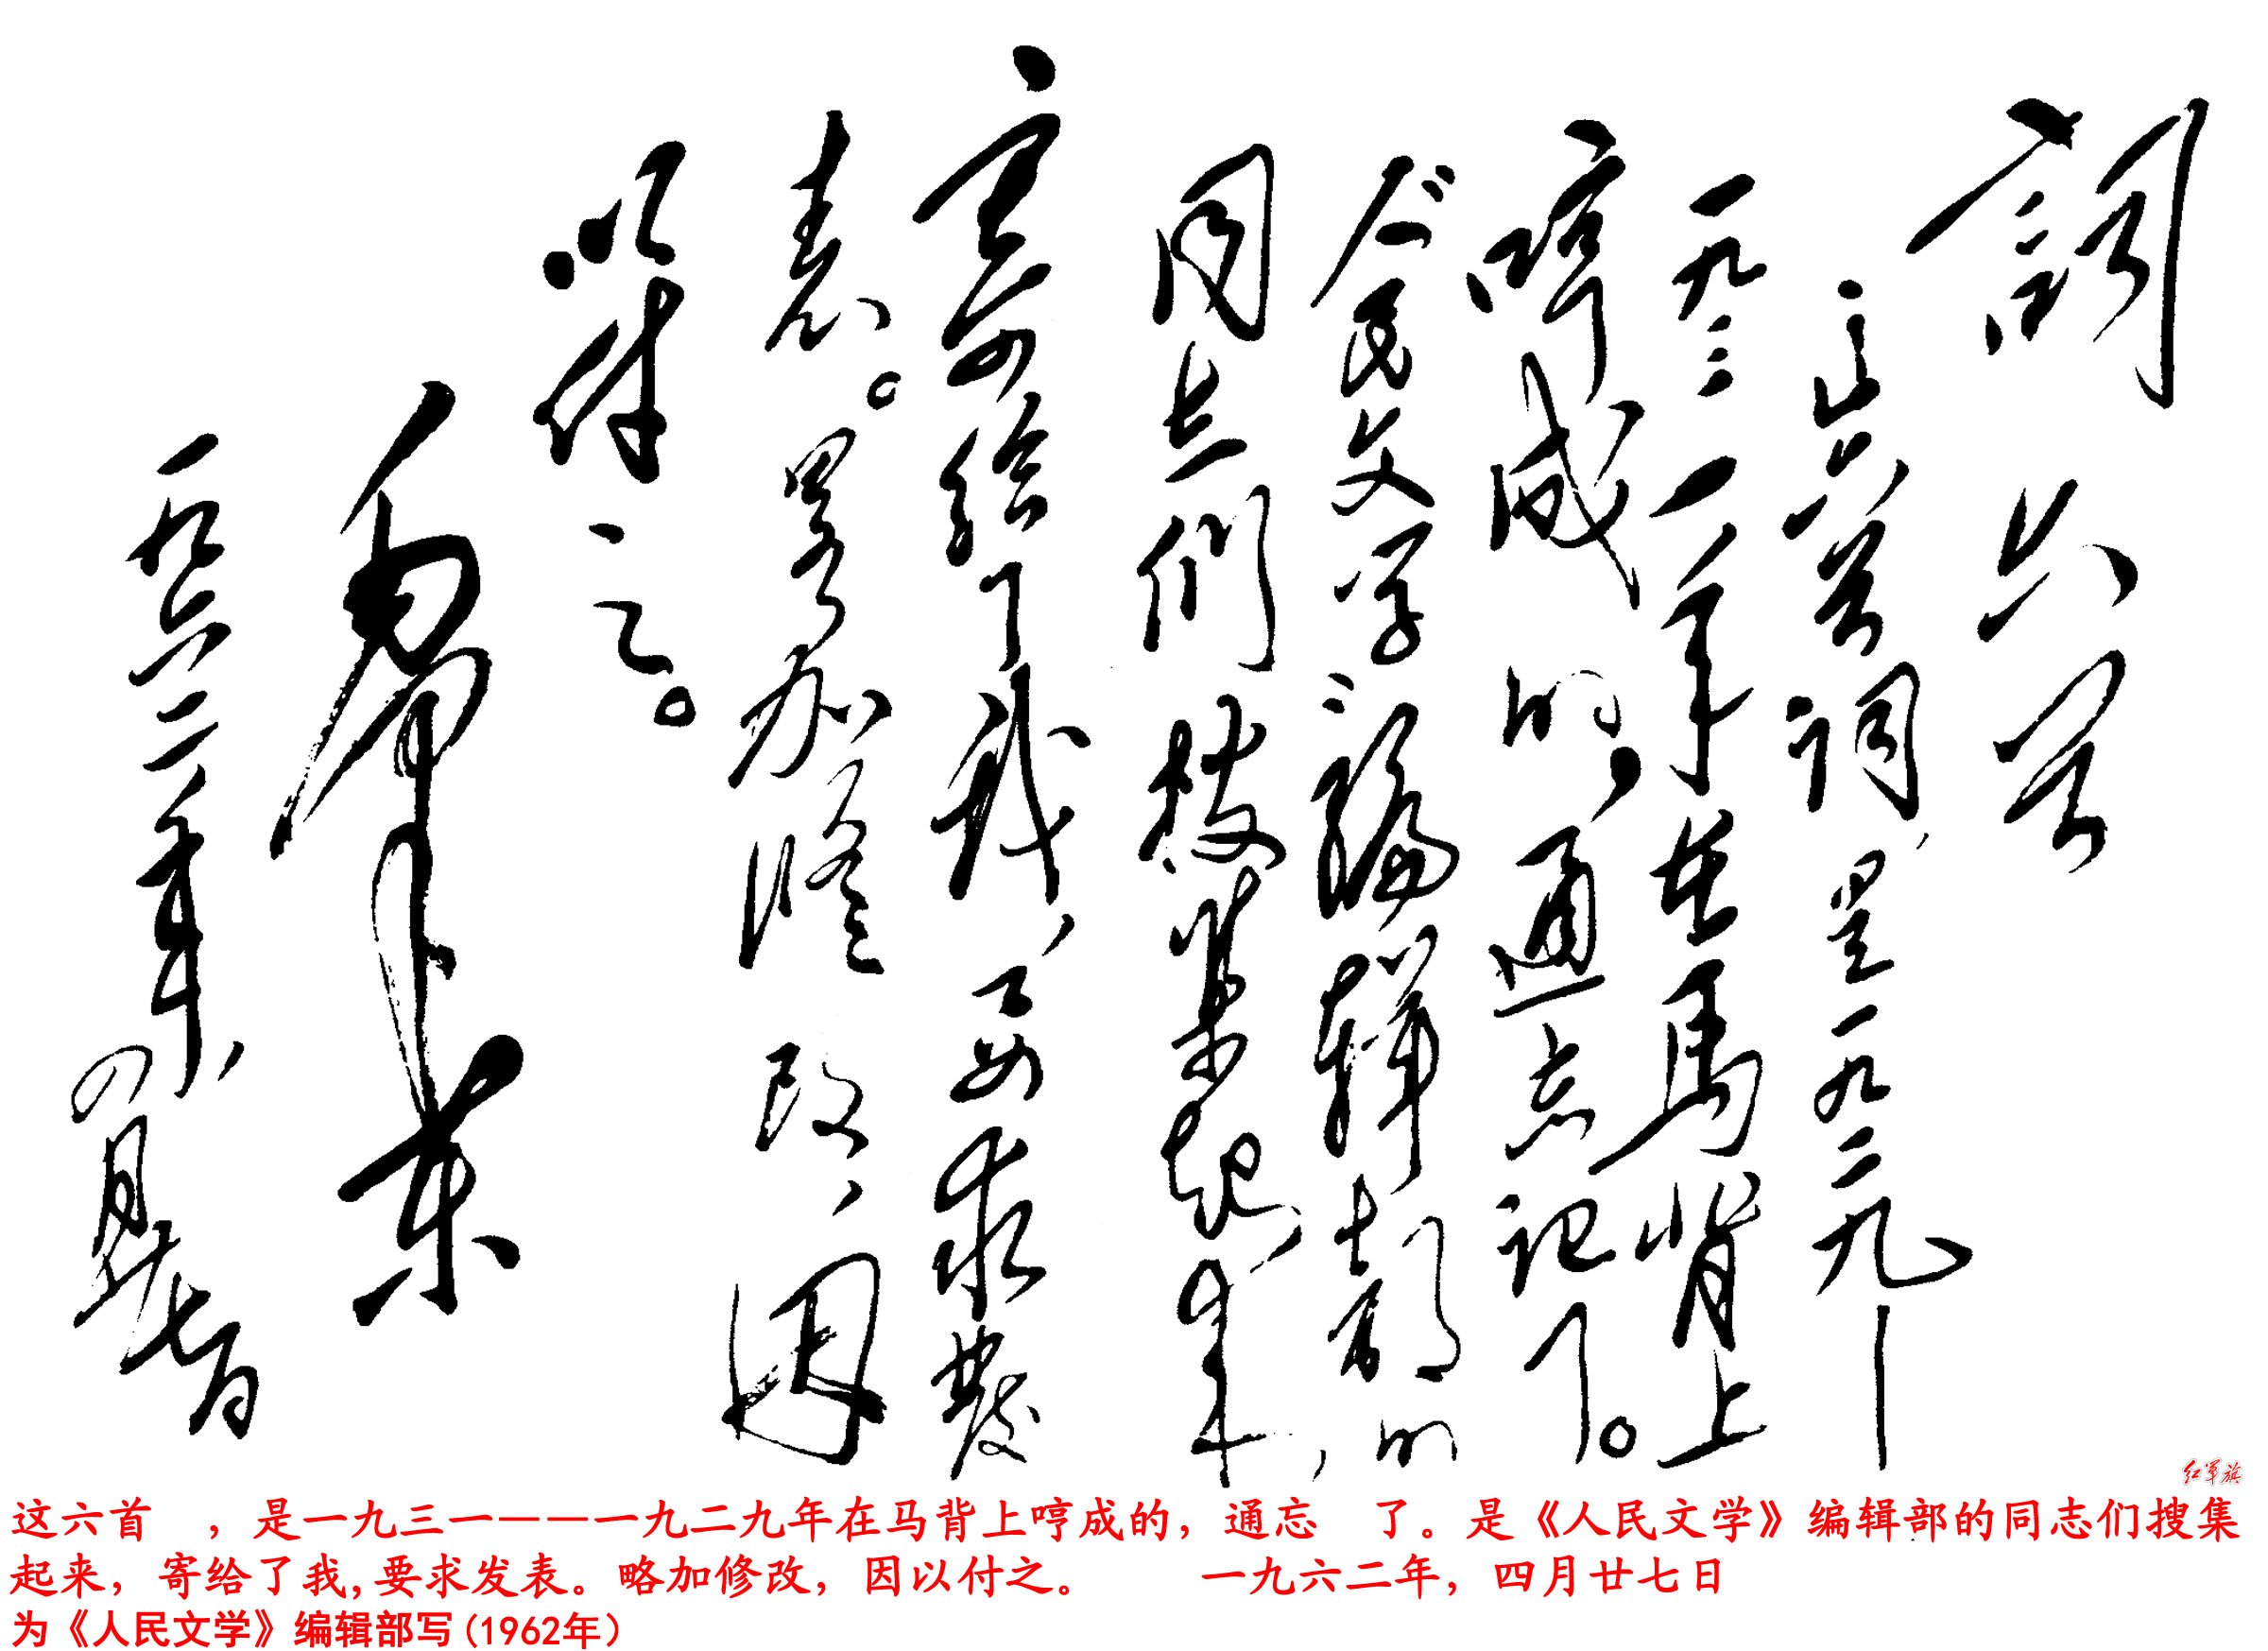 詞六首
这六首词，是一九二九—
一九三一年在马背上
哼成的，通忘记了。
《人民文学》編輯部的
同志們搜集起来，
寄给了我，要求發
表。畧加修改，因
以付之。
毛泽东
一九六二年，四月廿七日
红军旗
这六首　，是一九三一——一九二九年在马背上哼成的，通忘　了。是《人民文学》编辑部的同志们搜集
起来，寄给了我，要求发表。略加修改，因以付之。　　一九六二年，四月廿七日
为《人民文学》编辑部写(1962年)